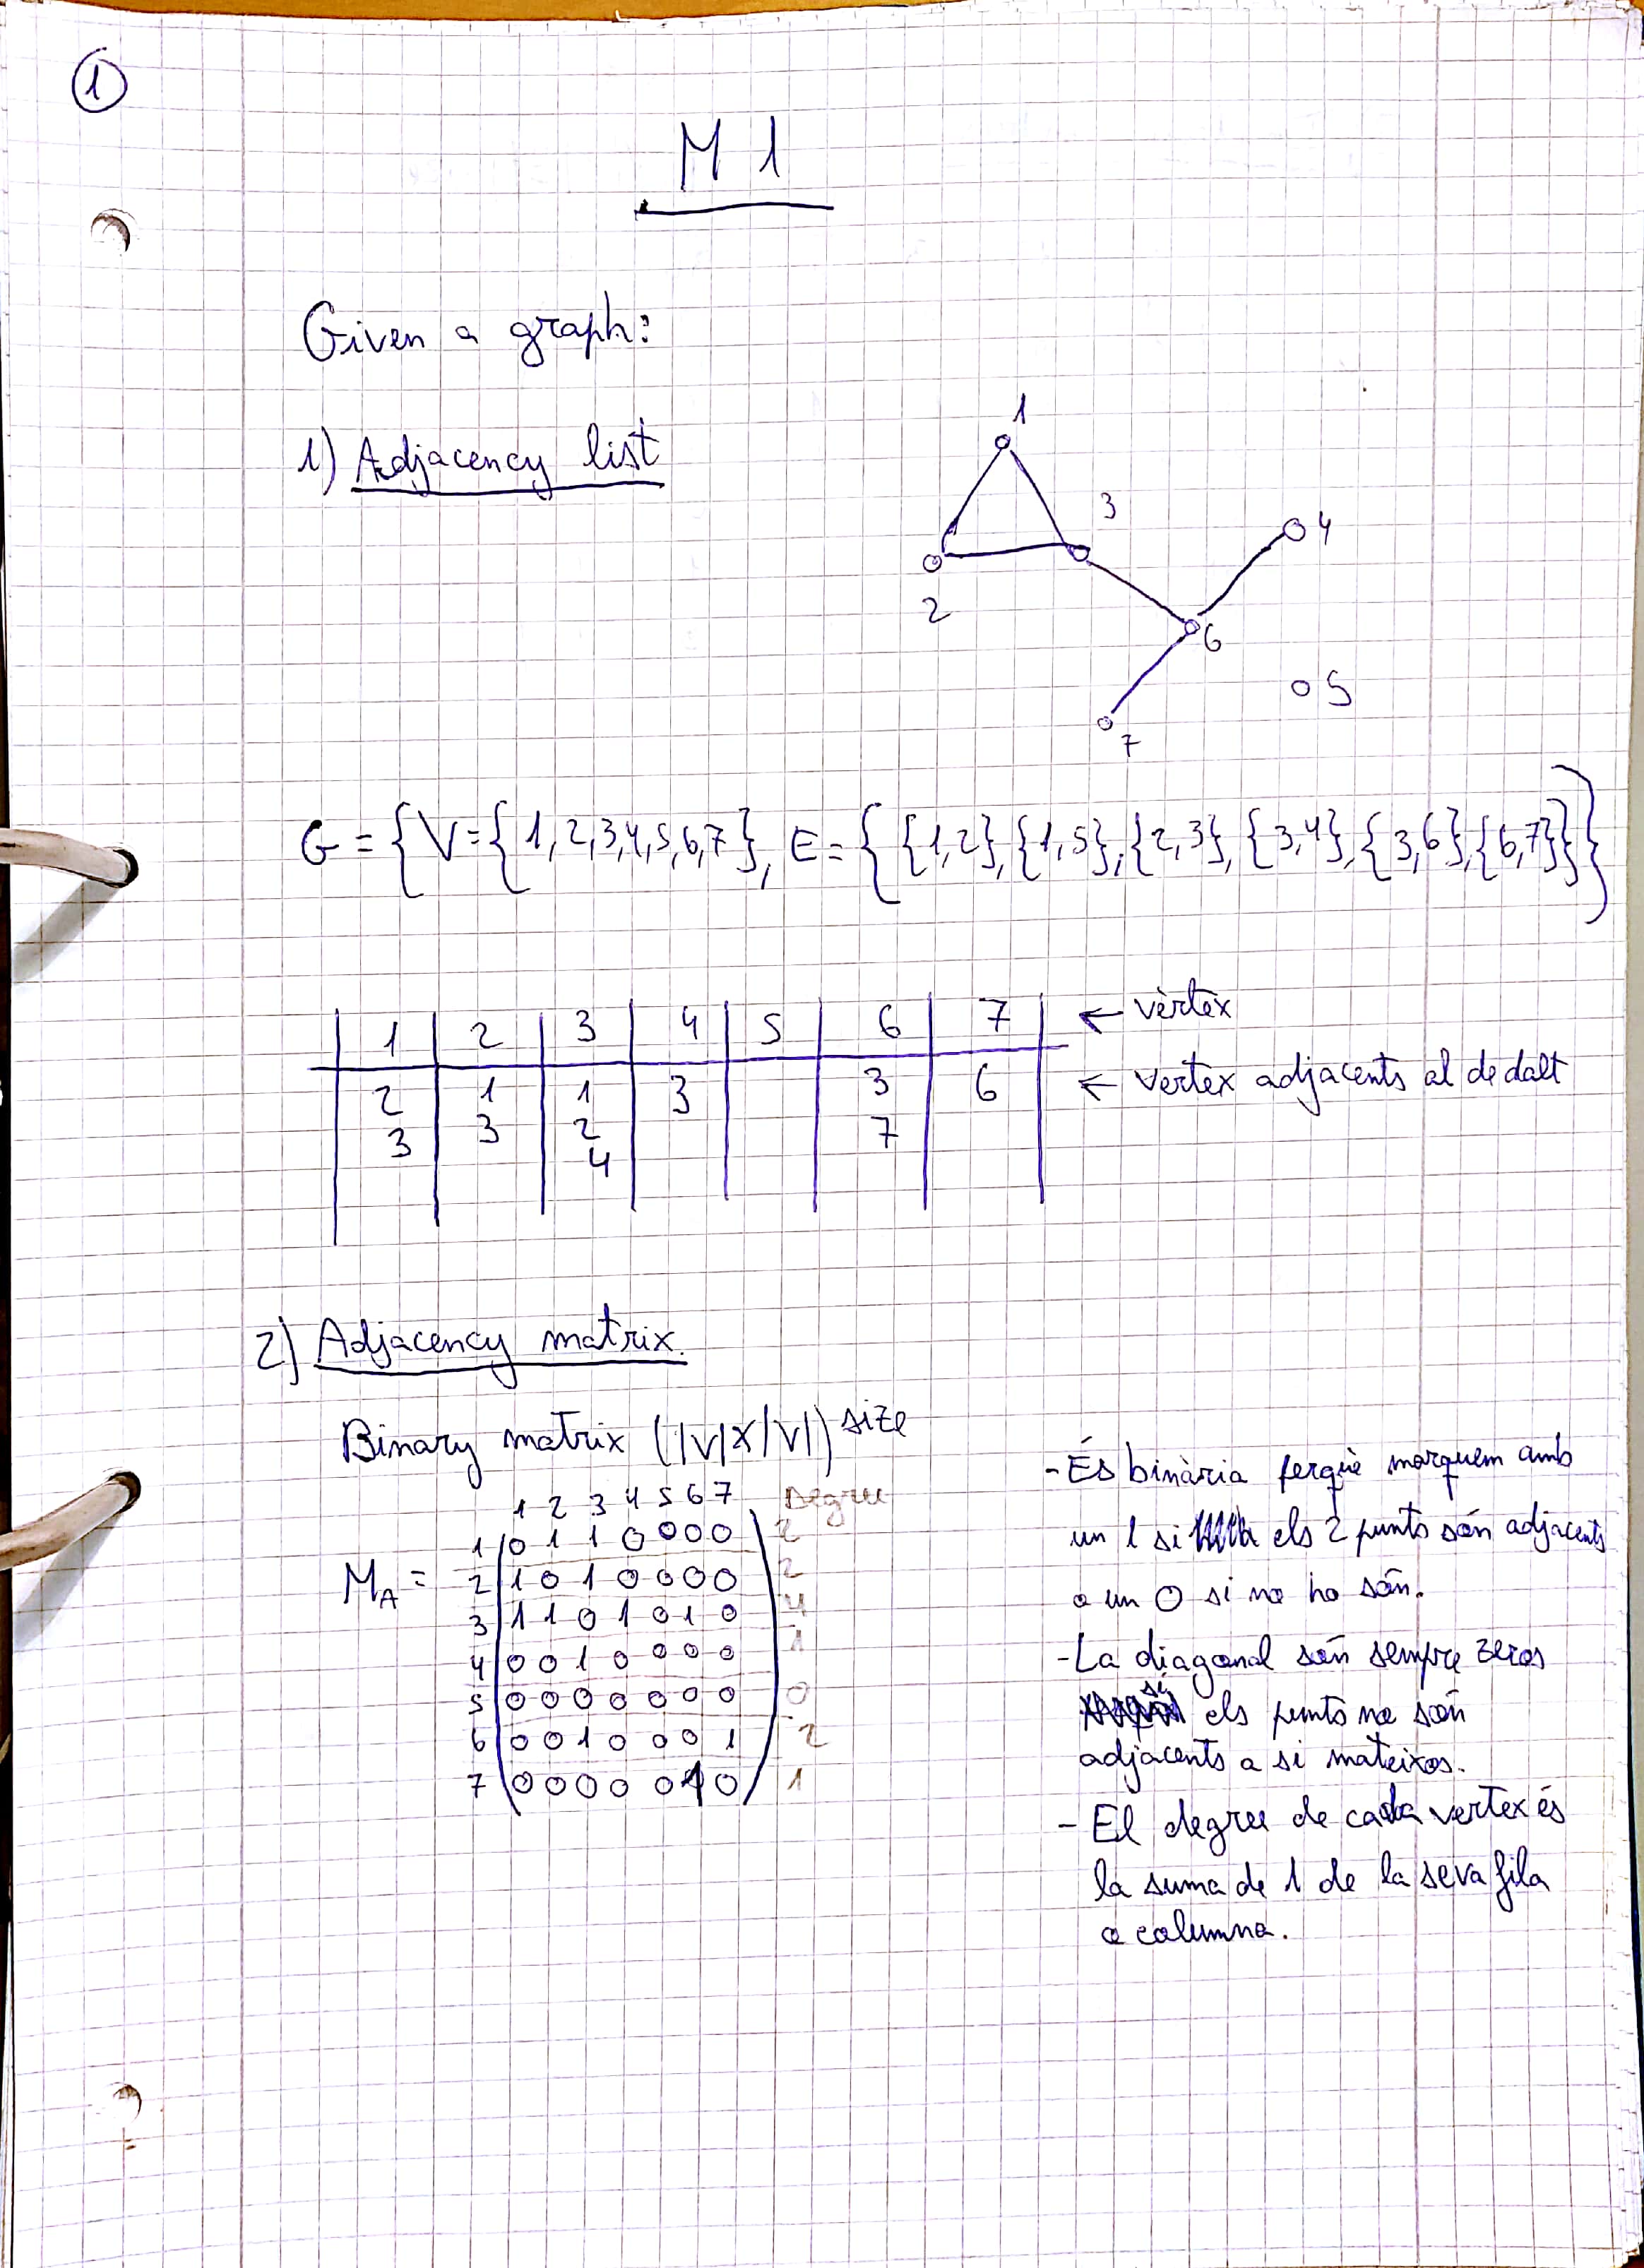 1
M 1
Given a graph:
1) Adjacency list
1
3
4
2
6
5
7
G = { V = { 1, 2, 3, 4, 5, 6, 7 }, E = { {1,2}, {1,5}, {2,3}, {3,4}, {3,6}, {6,7} } }
1 2 3 4 5 6 7 ← vèrtex
2 1 1 3 3 6 ← vertex adjacents al de dalt
3 3 2 7
4
2) Adjacency matrix.
Binary matrix (|V|X|V|) size
1 2 3 4 5 6 7 Degree
1 0 1 1 0 0 0 0 2
MA = 2 1 0 1 0 0 0 0 2
3 1 1 0 1 0 1 0 4
4 0 0 1 0 0 0 0 1
5 0 0 0 0 0 0 0 0
6 0 0 1 0 0 0 1 2
7 0 0 0 0 0 1 0 1
- És binària perquè marquem amb
un 1 si els 2 punts són adjacents
o un 0 si no ho són.
- La diagonal són sempre zeros
si els punts no són
adjacents a si mateixos.
- El degree de cada vertex és
la suma de 1 de la seva fila
o columna.